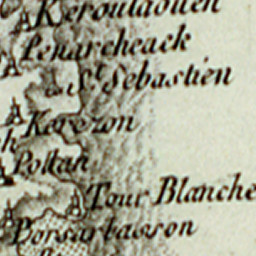 Keroulaouen
Penarcheack
St. Sebastien
Karezon
Poltan
Tour Blanche
Porsarbasson